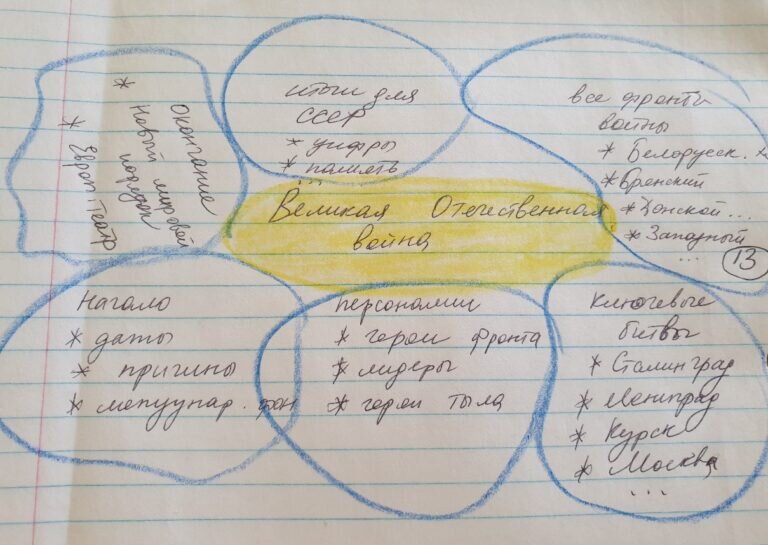 Великая Отечественная
война
Окончание
* Новый мировой
порядок
* Европ. театр
итоги для
СССР
* цифры
* память
...
все фронты
войны
* Белорусск.
* Брянский
* Донской...
* Западный
...
13
Начало
* даты
* причины
* фон
персоналии
* герои фронта
* лидеры
* герои тыла
ключевые
битвы
* Сталинград
* Ленинград
* Курск
* Москва
...